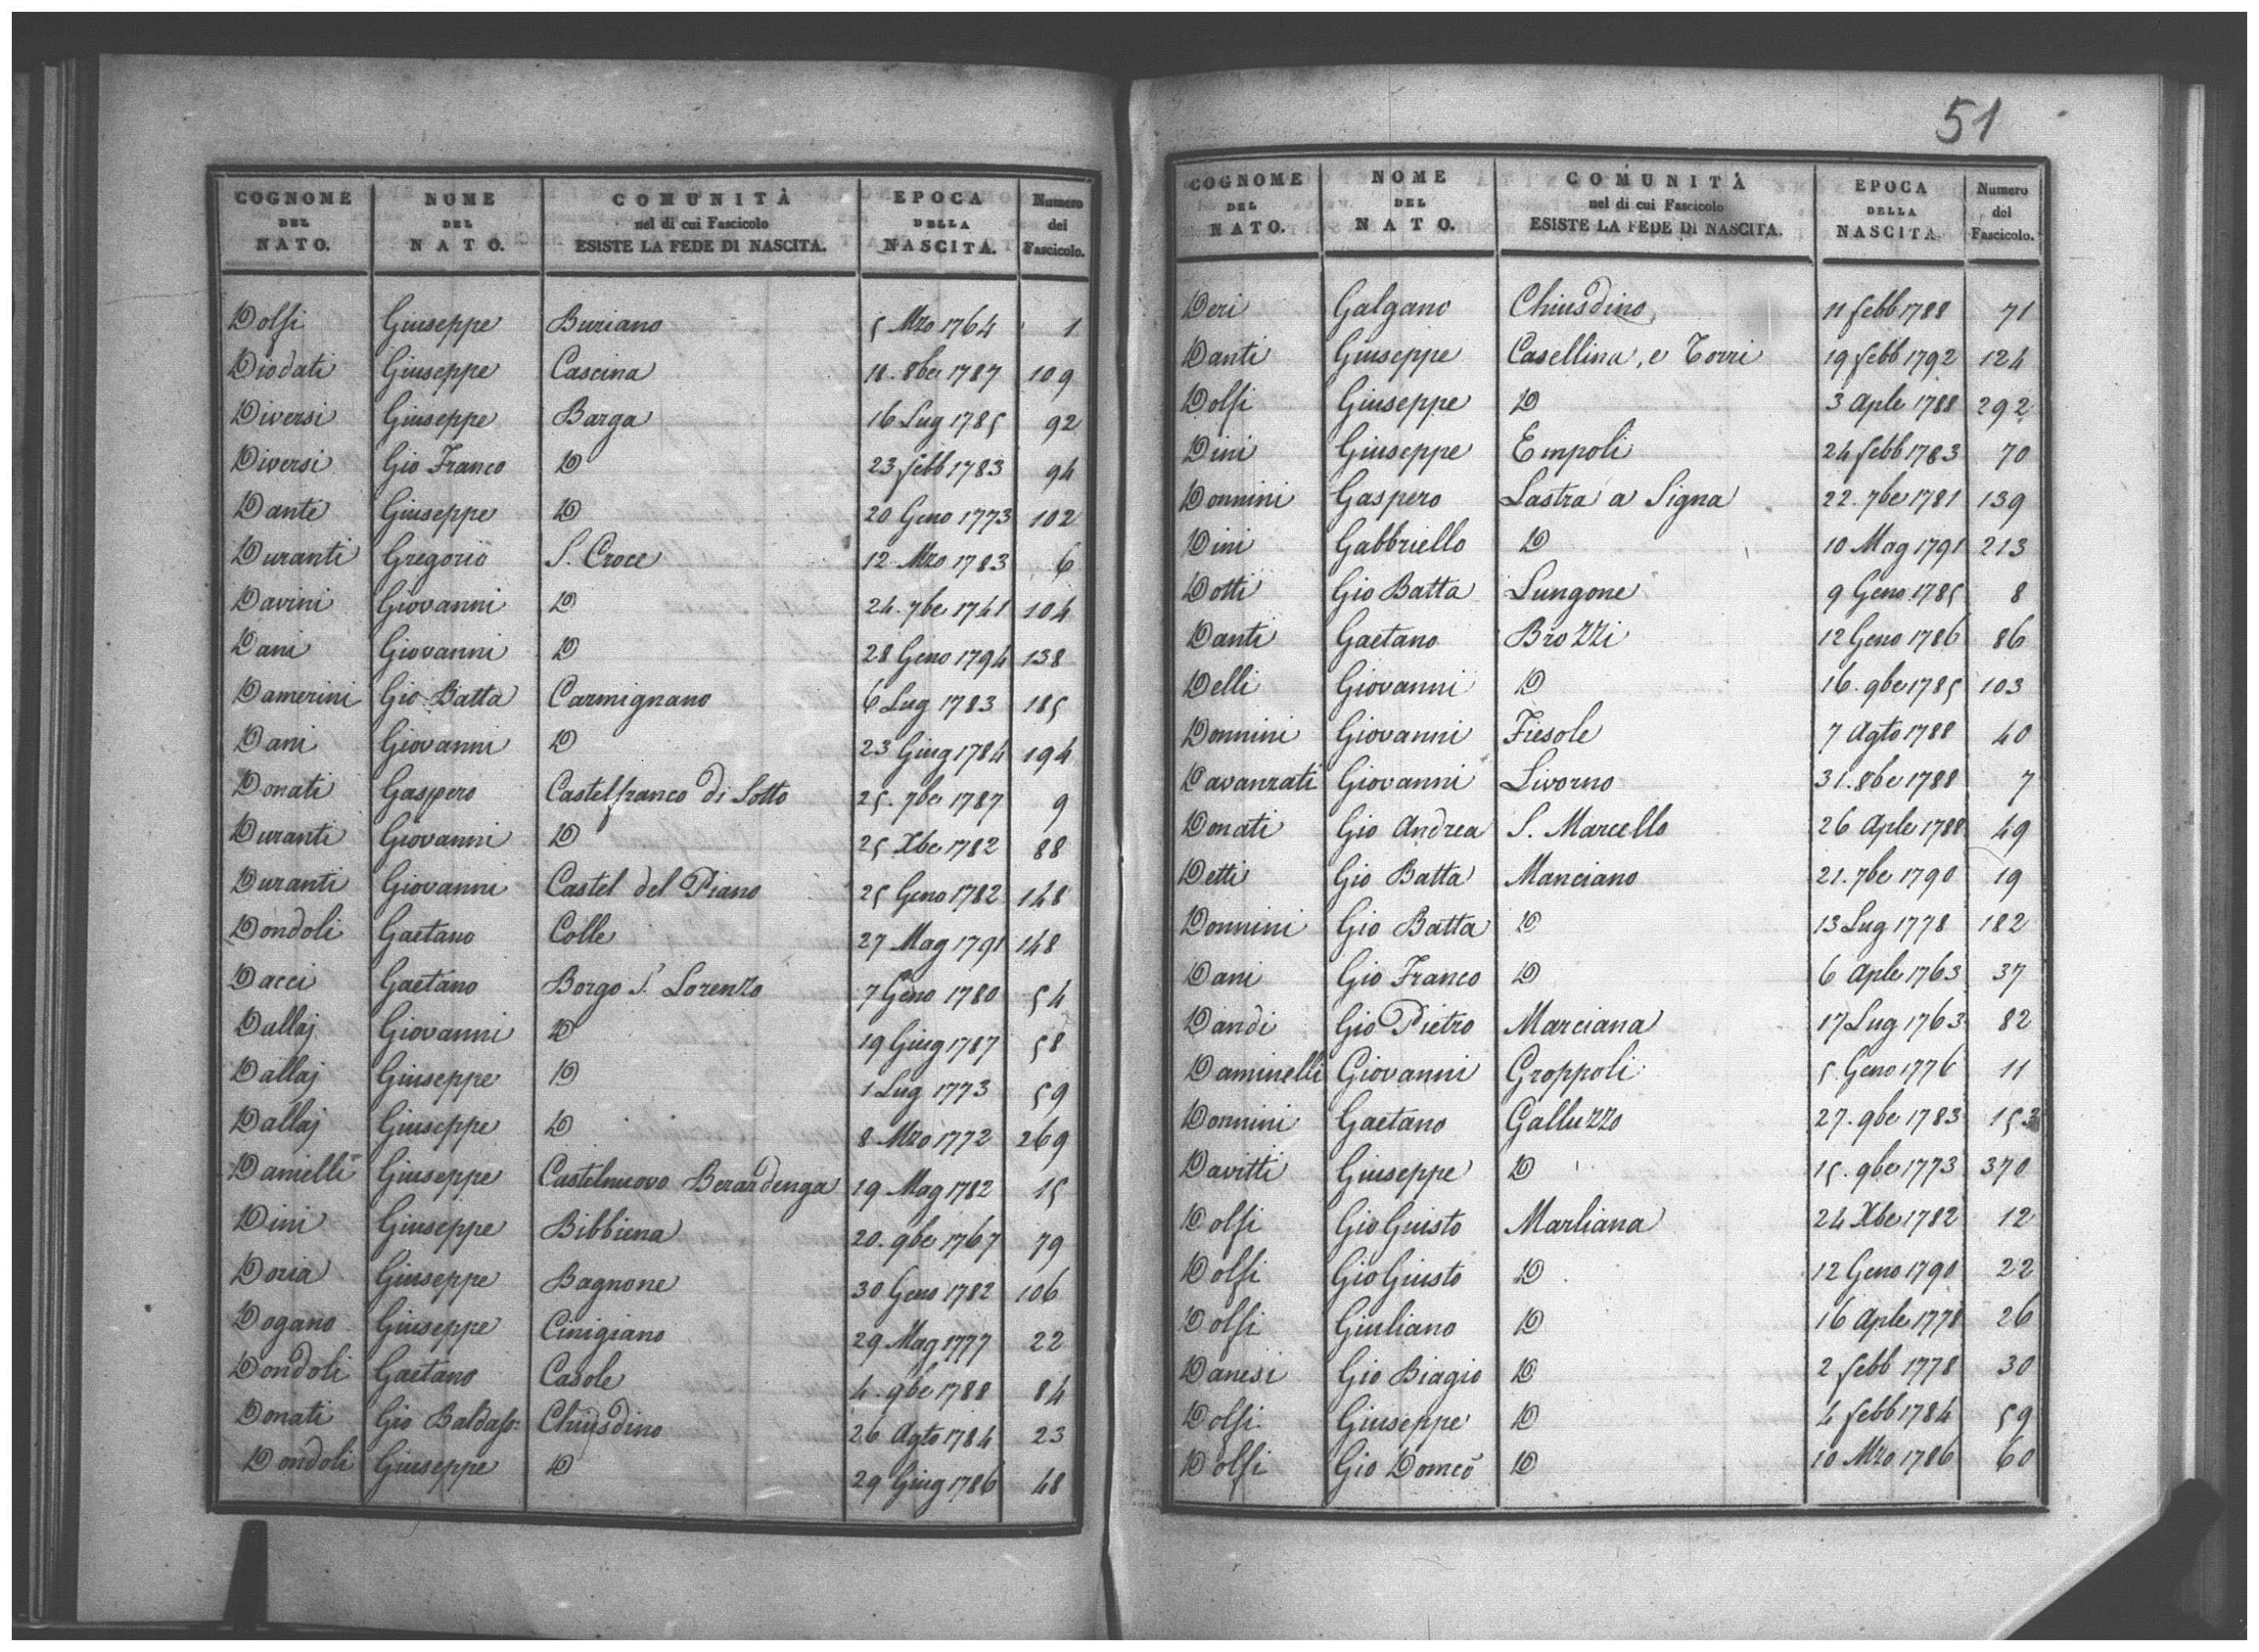 COGNOME DEL NATO. NOME DEL NATO. COMUNITÀ nel di cui Fascicolo ESISTE LA FEDE DI NASCITA. EPOCA DELLA NASCITA. Numero del Fascicolo.
Dolfi Giuseppe Buriano 5 Mzo 1764 1
Diodati Giuseppe Cascina 18. 8be 1787 109
Diversi Giuseppe Barga 16 Lug 1785 92
Diversi Gio Franco D 23 febb 1783 94
Dante Giuseppe D 20 Geno 1773 102
Duranti Gregorio S. Croce 12 Mzo 1783 6
Davini Giovanni D 24. 7be 1741 104
Dani Giovanni D 28 Geno 1794 138
Damerini Gio Batta Carmignano 6 Lug 1783 185
Dani Giovanni D 23 Giug 1784 194
Donati Gaspero Castelfranco di Sotto 25. 7be 1787 9
Duranti Giovanni D 25 Xbe 1782 88
Duranti Giovanni Castel del Piano 25 Geno 1782 148
Dondoli Gaetano Colle 27 Mag 1791 148
Dacci Gaetano Borgo S. Lorenzo 7 Geno 1780 54
Dallaj Giovanni D 19 Giug 1787 58
Dallaj Giuseppe D 1 Lug 1773 59
Dallaj Giuseppe D 8 Mzo 1772 269
Danielli Giuseppe Castelnuovo Berardenga 19 Mag 1782 15
Dini Giuseppe Bibbiena 20. 9be 1767 79
Doria Giuseppe Bagnone 30 Geno 1782 106
Dogano Giuseppe Cinigiano 29 Mag 1777 22
Dondoli Gaetano Casole 4. 9be 1788 84
Donati Gio Baldass: Chiusdino 26 Agto 1784 23
Dondoli Giuseppe D 29 Giug 1786 48
51
COGNOME DEL NATO. NOME DEL NATO. COMUNITÀ nel di cui Fascicolo ESISTE LA FEDE DI NASCITA. EPOCA DELLA NASCITA. Numero del Fascicolo.
Deri Galgano Chiusdino 11 febb 1788 71
Danti Giuseppe Casellina, e Torri 19 febb 1792 124
Dolfi Giuseppe D 3 Aple 1788 292
Dini Giuseppe Empoli 24 febb 1783 70
Donnini Gaspero Lastra a Signa 22. 7be 1781 139
Dini Gabbriello D 10 Mag 1791 213
Dotti Gio Batta Lungone 9 Geno 1785 8
Danti Gaetano Brozzi 12 Geno 1786 86
Delli Giovanni D 16. 9be 1785 103
Donnini Giovanni Fiesole 7 Agto 1788 40
Davanzati Giovanni Livorno 31. 8be 1788 7
Donati Gio Andrea S. Marcello 26 Aple 1788 49
Detti Gio Batta Manciano 21. 7be 1790 19
Donnini Gio Batta D 13 Lug 1778 182
Dani Gio Franco D 6 Aple 1763 37
Dandi Gio Pietro Marciana 17 Lug 1763 82
Daminelli Giovanni Groppoli 5 Geno 1776 11
Donnini Gaetano Galluzzo 27. 9be 1783 153
Davitti Giuseppe D 15. 9be 1773 370
Dolfi Gio Giusto Marliana 24 Xbe 1782 12
Dolfi Gio Giusto D 12 Geno 1790 22
Dolfi Giuliano D 16 Aple 1778 26
Danesi Gio Biagio D 2 febb 1778 30
Dolfi Giuseppe D 4 febb 1784 59
Dolfi Gio Domco D 10 Mzo 1786 60